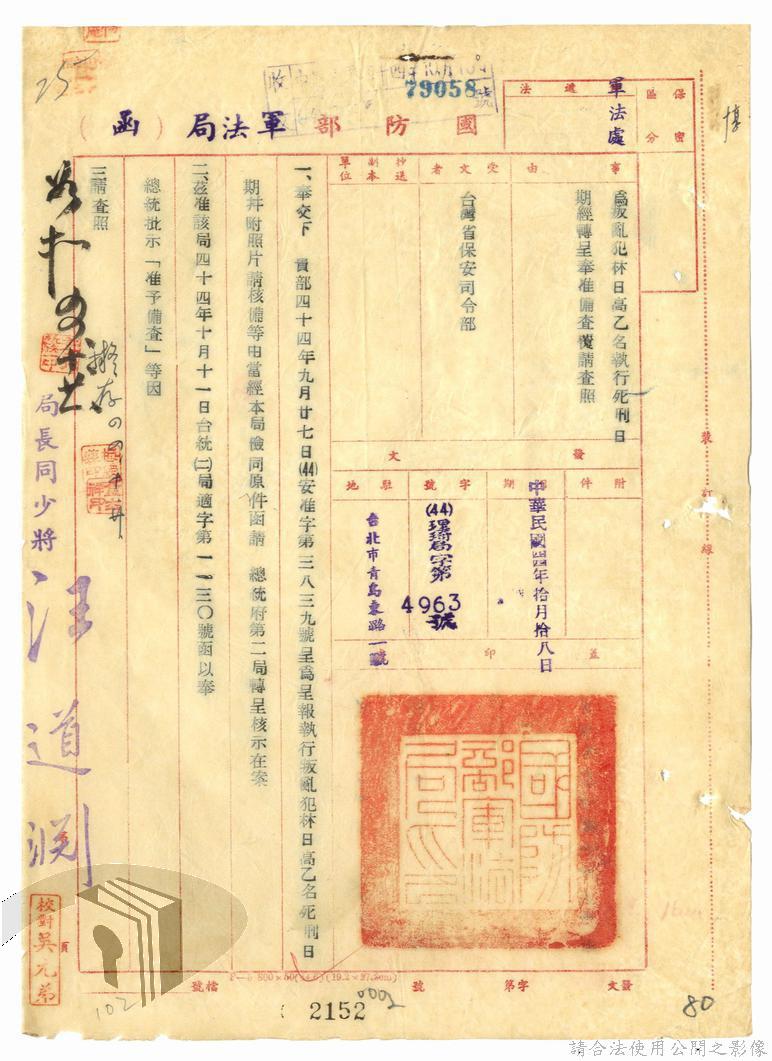 79058
號
國防部軍法局（函）
保密區分
軍法處
遞法
事由
為叛亂犯林日高乙名執行死刑日
期經轉呈奉准備查復請查照
受文者
台灣省保安司令部
抄送副本單位
發文
附件
日期
中華民國四四年拾月拾八日
字號
(44)理琦局字第4963號
駐地
台北市青島東路一號
蓋印
一、奉交下　貴部四十四年九月廿七日(44)安准字第三八三九號呈為呈報執行叛亂犯林日高乙名死刑日
期并附照片請核備等由當經本局檢同原件函請　總統府第二局轉呈核示在案
二、茲准該局四十四年十月十一日台統(二)局適字第一一三〇號函以奉
總統批示「准予備查」等因
三、請查照
擬存
局長同少將汪道渊
校對吳元弟
裝訂線
國防部軍法局印
檔號
發文　字第　號
2152
0002
102
80
25
請合法使用公開之影像